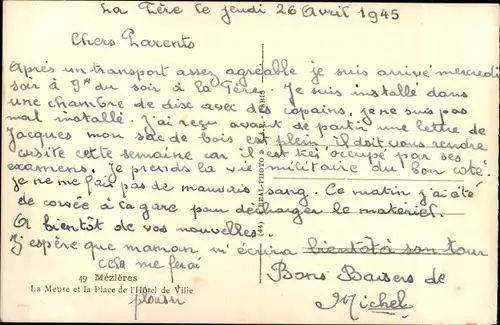 La Fère le jeudi 26 Avril 1945
Chers Parents
Après un transport assez agréable je suis arrivé mercredi
soir à 9h du soir à la Fère. Je suis installé dans
une chambre de disc avec des copains, je ne suis pas
mal installé. J'ai reçu avant de partir une lettre de
Jacques mon sac de bois est plein il doit vous rendre
visite cette semaine car il est très occupé par ses
examens. Je prends la vie militaire du bon côté.
je ne me fais pas de mauvais sang. Ce matin j'ai été
de corvée à la gare pour décharger le matériel.
A bientôt de vos nouvelles.
J'espère que maman m'écrira bientôt à son tour
cela me ferai
plaisir
Bons Baisers de
Michel
49 MÉZIÈRES
La Meuse et la Place de l'Hôtel de Ville
REAL-PHOTO PARIS